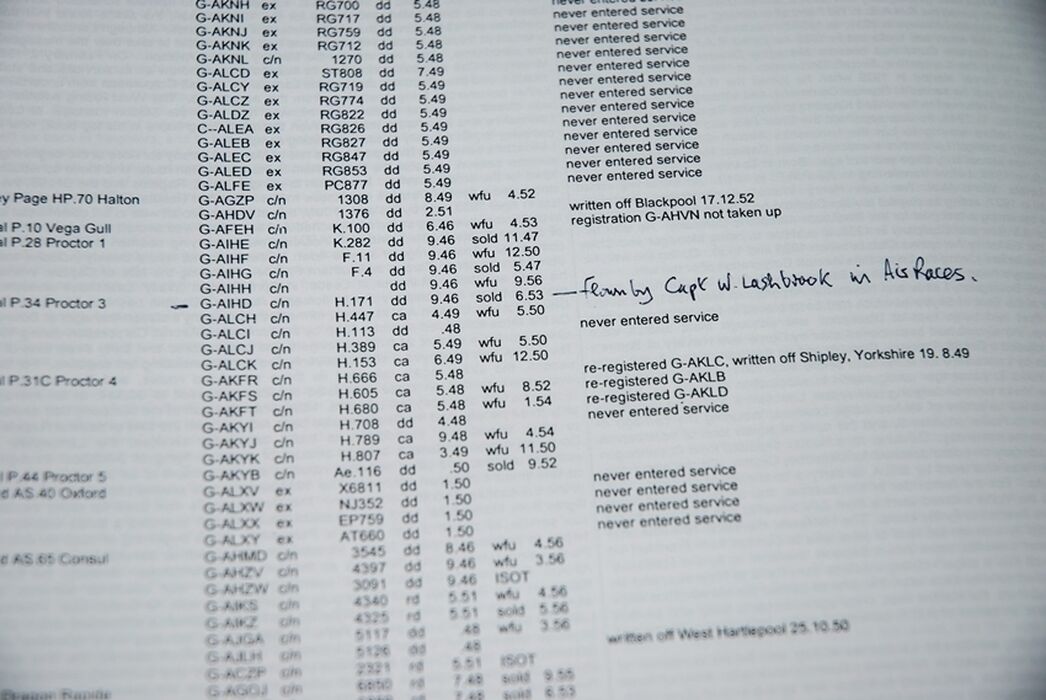 G-AKNH ex RG700 dd 5.48 never entered service
G-AKNI ex RG717 dd 5.48 never entered service
G-AKNJ ex RG759 dd 5.48 never entered service
G-AKNK ex RG712 dd 5.48 never entered service
G-AKNL c/n 1270 dd 5.48 never entered service
G-ALCD ex ST808 dd 7.49 never entered service
G-ALCY ex RG719 dd 5.49 never entered service
G-ALCZ ex RG774 dd 5.49 never entered service
G-ALDZ ex RG822 dd 5.49 never entered service
C--ALEA ex RG826 dd 5.49 never entered service
G-ALEB ex RG827 dd 5.49 never entered service
G-ALEC ex RG847 dd 5.49 never entered service
G-ALED ex RG853 dd 5.49 never entered service
G-ALFE ex PC877 dd 5.49 never entered service
y Page HP.70 Halton G-AGZP c/n 1308 dd 8.49 wfu 4.52
G-AHDV c/n 1376 dd 2.51 written off Blackpool 17.12.52
al P.10 Vega Gull G-AFEH c/n K.100 dd 6.46 wfu 4.53 registration G-AHVN not taken up
al P.28 Proctor 1 G-AIHE c/n K.282 dd 9.46 sold 11.47
G-AIHF c/n F.11 dd 9.46 wfu 12.50
G-AIHG c/n F.4 dd 9.46 sold 5.47
G-AIHH c/n dd 9.46 wfu 9.56
al P.34 Proctor 3 – G-AIHD c/n H.171 dd 9.46 sold 6.53 — flown by Capt W. Lashbrook in Air Races.
G-ALCH c/n H.447 ca 4.49 wfu 5.50
G-ALCI c/n H.113 dd .48 never entered service
G-ALCJ c/n H.389 ca 5.49 wfu 5.50
G-ALCK c/n H.153 ca 6.49 wfu 12.50
al P.31C Proctor 4 G-AKFR c/n H.666 ca 5.48 re-registered G-AKLC, written off Shipley, Yorkshire 19. 8.49
G-AKFS c/n H.605 ca 5.48 wfu 8.52 re-registered G-AKLB
G-AKFT c/n H.680 ca 5.48 wfu 1.54 re-registered G-AKLD
G-AKYI c/n H.708 dd 4.48 never entered service
G-AKYJ c/n H.789 ca 9.48 wfu 4.54
G-AKYK c/n H.807 ca 3.49 wfu 11.50
al P.44 Proctor 5 G-AKYB c/n Ae.116 dd .50 sold 9.52
d AS.40 Oxford G-ALXV ex X6811 dd 1.50 never entered service
G-ALXW ex NJ352 dd 1.50 never entered service
G-ALXX ex EP759 dd 1.50 never entered service
G-ALXY ex AT660 dd 1.50 never entered service
d AS.65 Consul G-AHMD c/n 3545 dd 8.46 wfu 4.56
G-AHZV c/n 4397 dd 9.46 wfu 3.56
G-AHZW c/n 3091 dd 9.46 ISOT
G-AIKS c/n 4340 rd 5.51 wfu 4.56
G-AIKZ c/n 4325 rd 5.51 sold 5.56
G-AJGA c/n 5117 dd .48 wfu 3.56
G-AJLH c/n 5126 dd .48 written off West Hartlepool 25.10.50
G-ACZP c/n rd 5.51 ISOT
G-AGOJ c/n rd 7.48 sold
Dragon Rapide